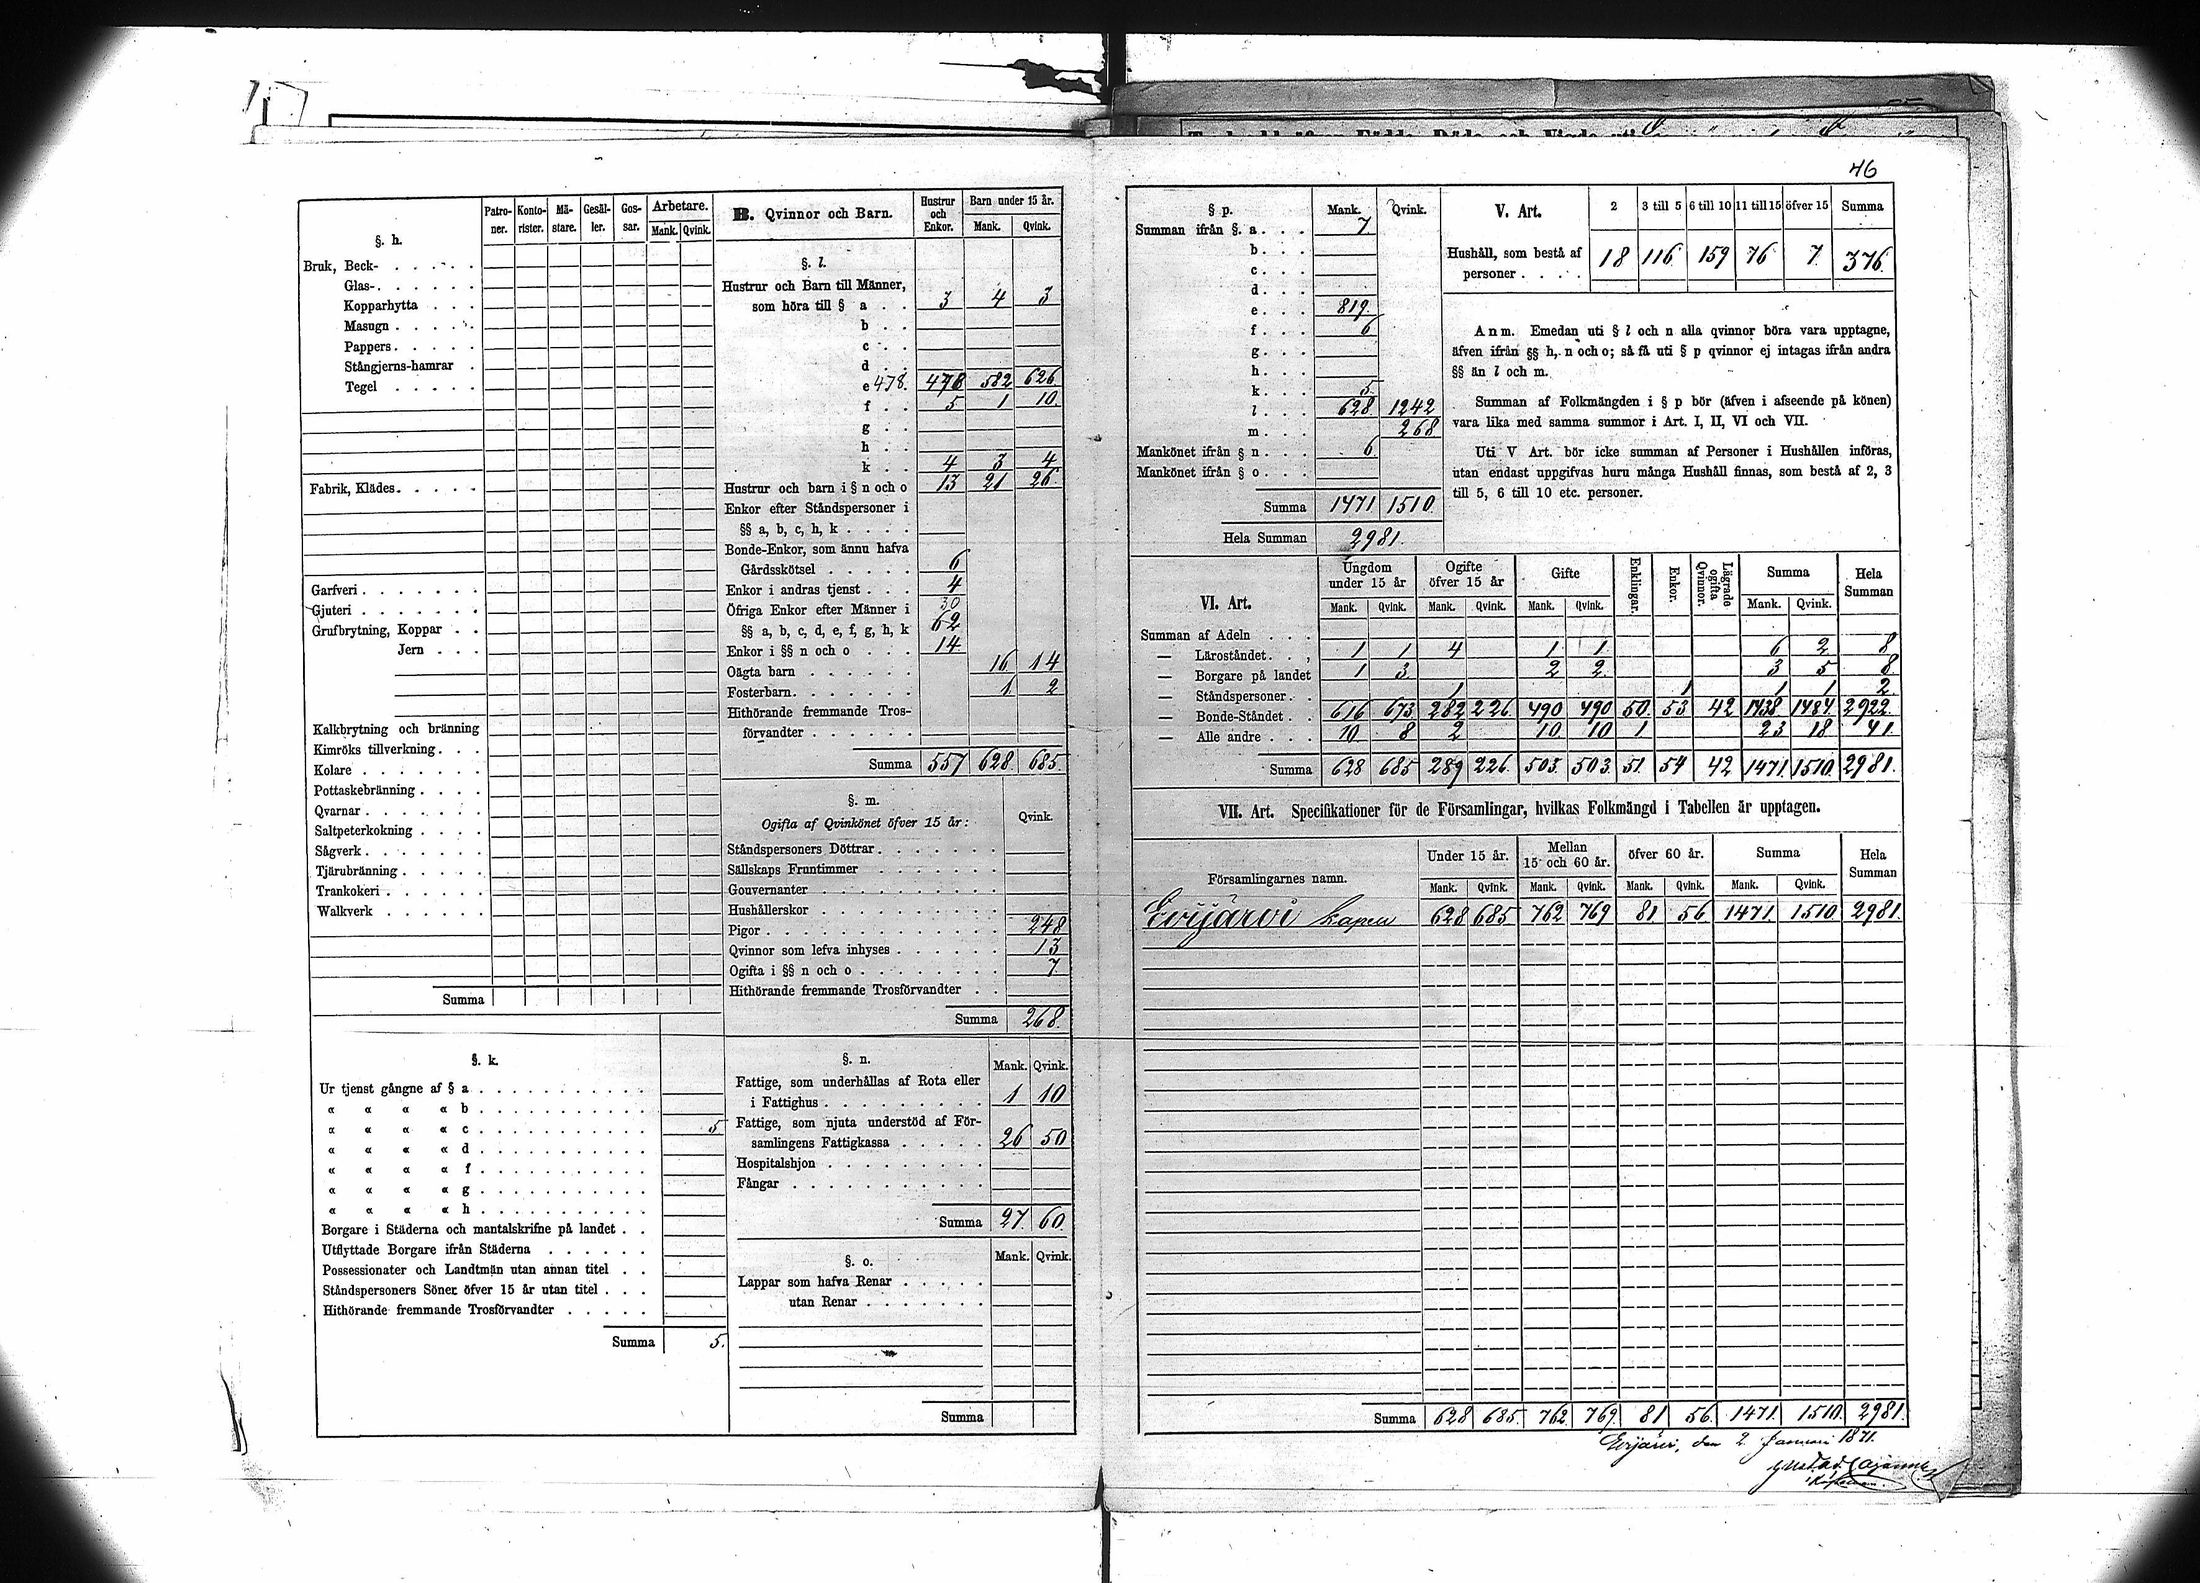 46
§. h.
Patro-ner. Konto-rister. Mä-stare. Gesäl-ler. Gos-sar. Arbetare. Mank. Qvink.
Bruk, Beck-
Glas-
Kopparhytta
Masugn
Pappers
Stångjerns-hamrar
Tegel
Fabrik, Klädes
Garfveri
Gjuteri
Grufbrytning, Koppar
Jern
Kalkbrytning och bränning
Kimröks tillverkning
Kolare
Pottaskebränning
Qvarnar
Saltpeterkokning
Sågverk
Tjärubränning
Trankokeri
Walkverk
Summa
§. k.
Ur tjenst gångne af § a
« « « « b
« « « « c 5
« « « « d
« « « « f
« « « « g
« « « « h
Borgare i Städerna och mantalskrifne på landet
Utflyttade Borgare ifrån Städerna
Possessionater och Landtmän utan annan titel
Ståndspersoners Söner öfver 15 år utan titel
Hithörande fremmande Trosförvandter
Summa 5.
B. Qvinnor och Barn. Hustrur och Enkor. Barn under 15 år. Mank. Qvink.
§. l.
Hustrur och Barn till Männer,
som höra till § a 3 4 3
b
c
d
e 478. 478 582 626
f 5 1 10.
g
h
k 4 3 4
Hustrur och barn i § n och o 13 21 26.
Enkor efter Ståndspersoner i
§§ a, b, c, h, k
Bonde-Enkor, som ännu hafva
Gårdsskötsel 6
Enkor i andras tjenst 4
Öfriga Enkor efter Männer i 30
§§ a, b, c, d, e, f, g, h, k 62
Enkor i §§ n och o 14
Oägta barn 16 14
Fosterbarn 1 2
Hithörande fremmande Tros-
förvandter
Summa 557 628 685.
§. m.
Ogifta af Qvinkönet öfver 15 år: Qvink.
Ståndspersoners Döttrar
Sällskaps Fruntimmer
Gouvernanter
Hushållerskor
Pigor 248
Qvinnor som lefva inhyses 13
Ogifta i §§ n och o 7
Hithörande fremmande Trosförvandter
Summa 268.
§. n. Mank. Qvink.
Fattige, som underhållas af Rota eller
i Fattighus 1 10
Fattige, som njuta understöd af För-
samlingens Fattigkassa 26 50
Hospitalshjon
Fångar
Summa 27. 60.
§. o. Mank. Qvink.
Lappar som hafva Renar
utan Renar
Summa
§ p. Mank. Qvink.
Summan ifrån §. a 7
b
c
d
e 819.
f 6
g
h
k 5.
l 628 1242
m 268
Mankönet ifrån § n 6
Mankönet ifrån § o
Summa 1471 1510
Hela Summan 2981.
V. Art. 2 3 till 5 6 till 10 11 till 15 öfver 15 Summa
Hushåll, som bestå af
personer 18 116 159 76 7 376.
Anm. Emedan uti § l och n alla qvinnor böra vara upptagne,
äfven ifrån §§ h, n och o; så få uti § p qvinnor ej intagas ifrån andra
§§ än l och m.
Summan af Folkmängden i § p bör (äfven i afseende på könen)
vara lika med samma summor i Art. I, II, VI och VII.
Uti V Art. bör icke summan af Personer i Hushållen införas,
utan endast uppgifvas huru många Hushåll finnas, som bestå af 2, 3
till 5, 6 till 10 etc. personer.
VI. Art. Ungdom under 15 år Ogifte öfver 15 år Gifte Enklingar. Enkor. Lägrade ogifta Qvinnor. Summa Hela Summan
Mank. Qvink. Mank. Qvink. Mank. Qvink. Mank. Qvink.
Summan af Adeln
— Läroståndet 1 1 4 1 1 6 2 8
— Borgare på landet 1 3 2 2 3 5 8
— Ståndspersoner 1 1 1 1 2
— Bonde-Ståndet 616 673 282 226 490 490 50. 53 42 1438 1484. 2922.
— Alle andre 10 8 2 10 10 1 23 18 41.
Summa 628 685 289 226. 503. 503. 51. 54 42 1471 1510. 2981.
VII. Art. Specifikationer för de Församlingar, hvilkas Folkmängd i Tabellen är upptagen.
Församlingarnes namn. Under 15 år. Mellan 15 och 60 år. öfver 60 år. Summa Hela Summan
Mank. Qvink. Mank. Qvink. Mank. Qvink. Mank. Qvink.
Evijärvi kapell 628 685 762 769 81. 56 1471 1510 2981.
Summa 628 685. 762 769. 81 56. 1471. 1510. 2981.
Evijärvi, den 2 Januari 1871.